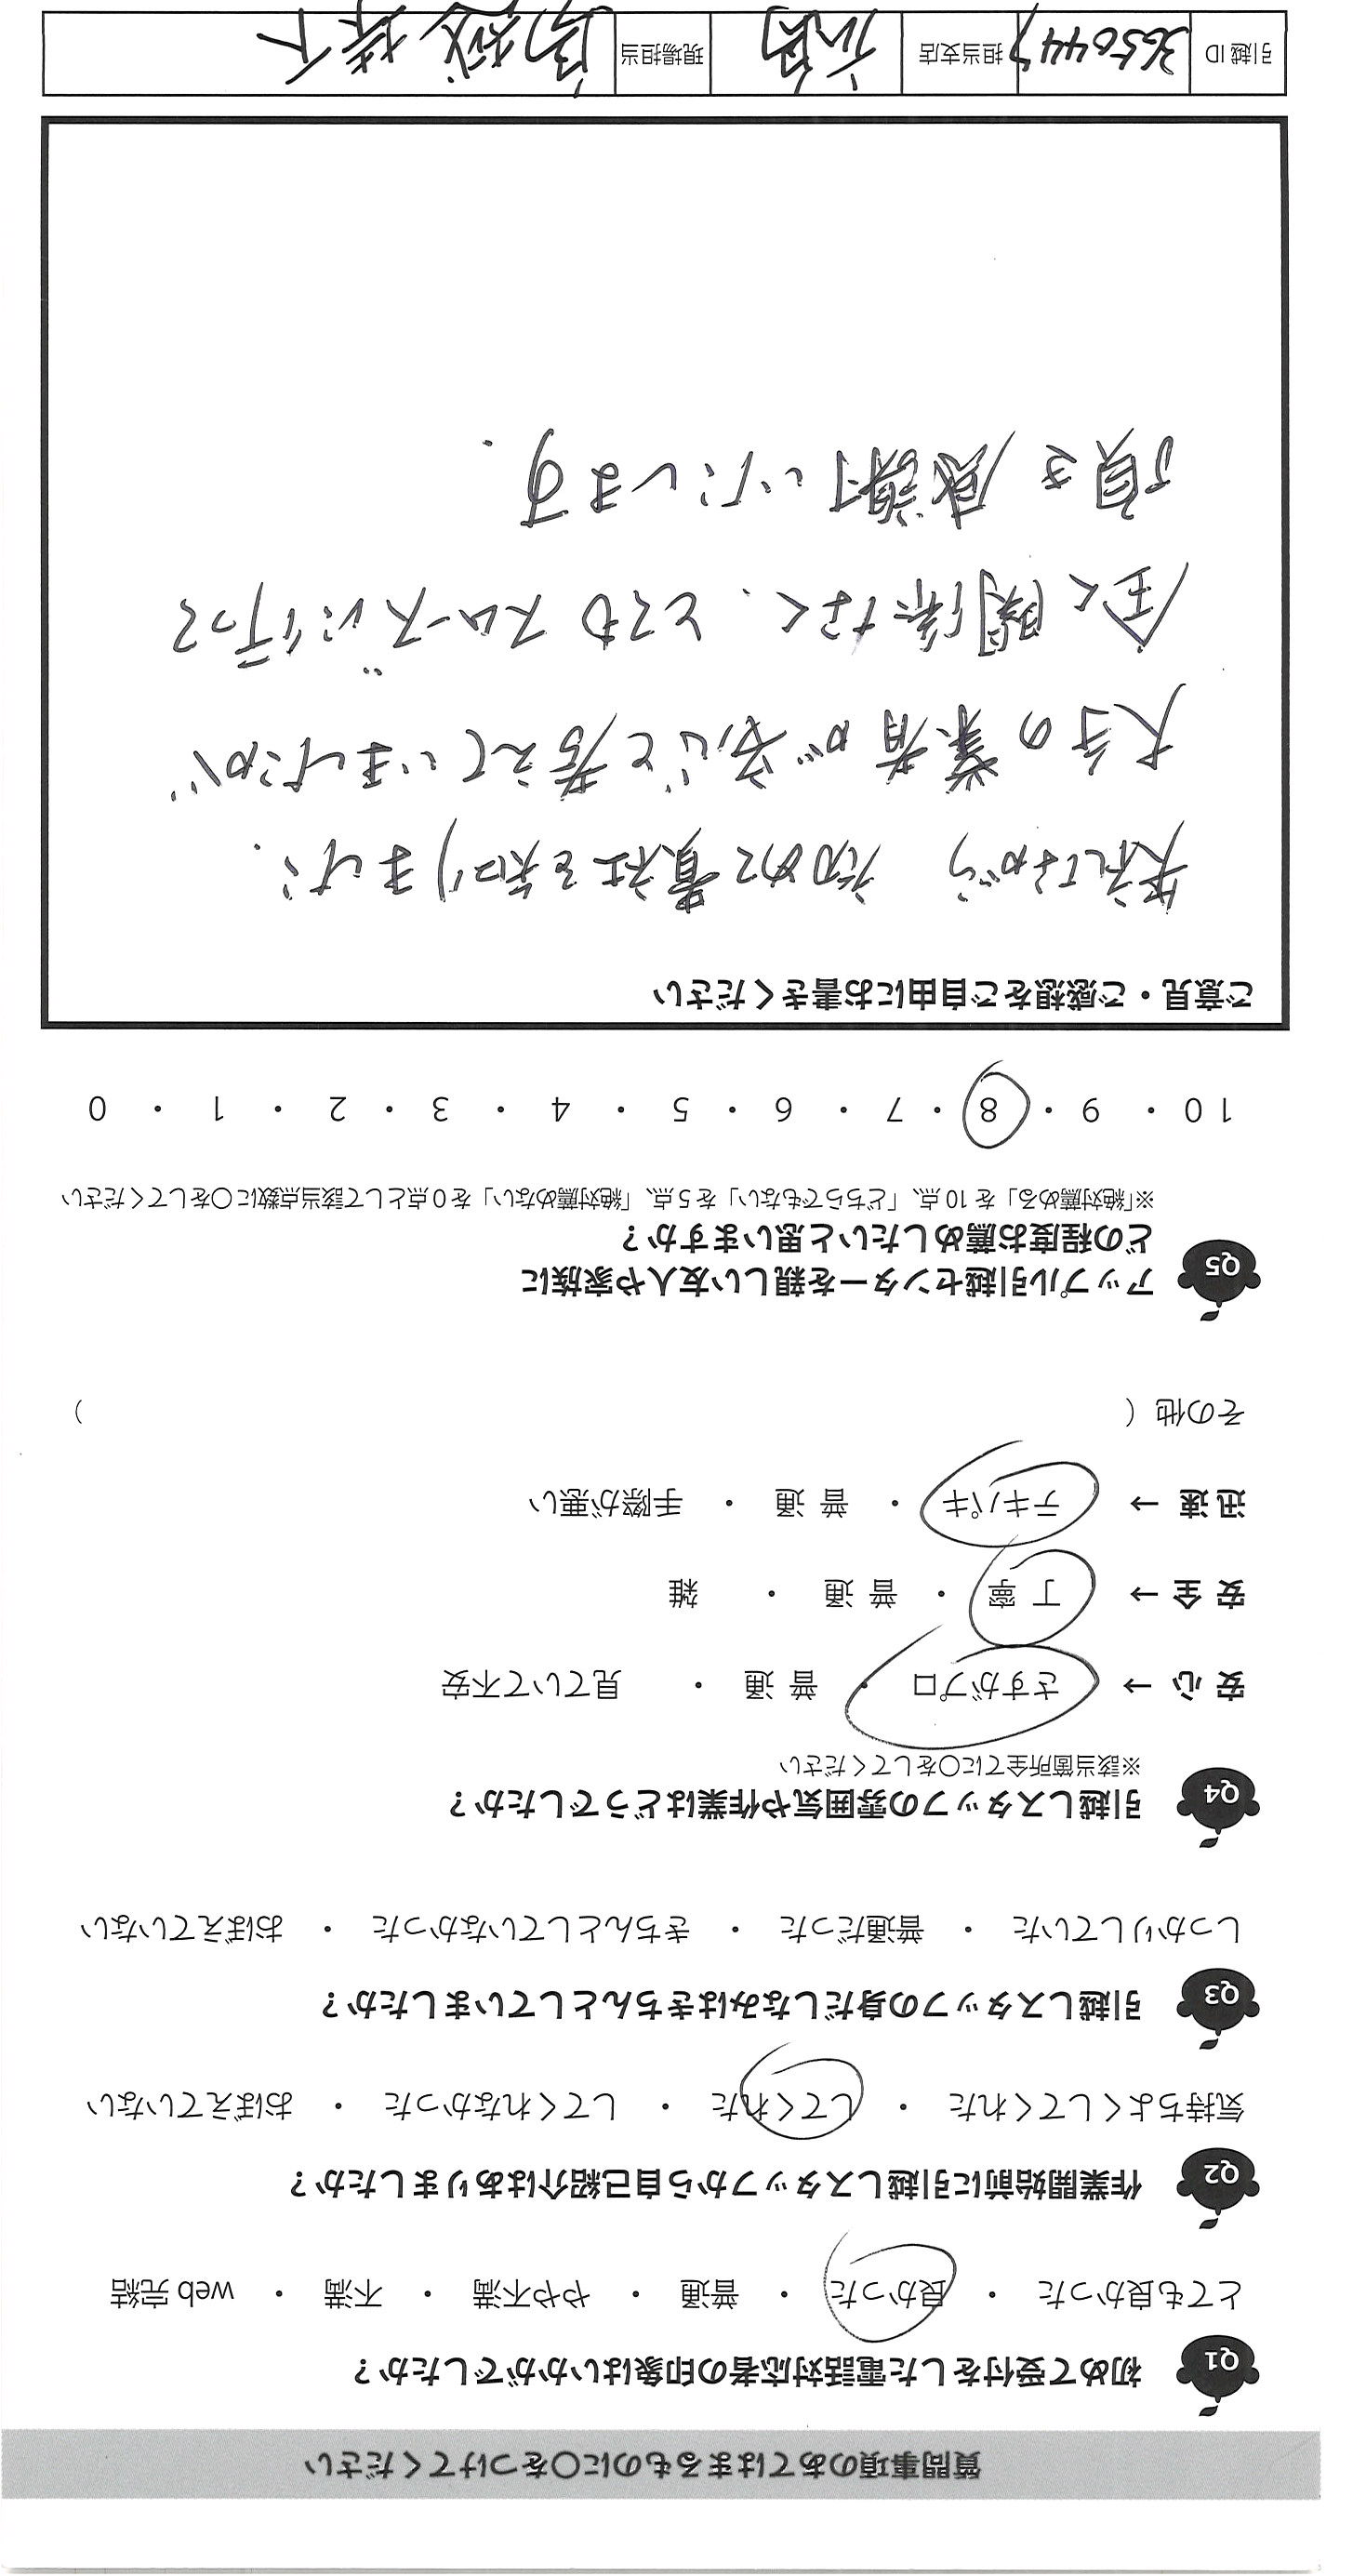 質問事項のあてはまるものに○をつけてください
Q1 初めて受付をした電話対応者の印象はいかがでしたか？
とても良かった ・ 良かった ・ 普通 ・ やや不満 ・ 不満 ・ web 完結
Q2 作業開始前に引越しスタッフから自己紹介はありましたか？
気持ちよくしてくれた ・ してくれた ・ してくれなかった ・ おぼえていない
Q3 引越しスタッフの身だしなみはきちんとしていましたか？
しっかりしていた ・ 普通だった ・ きちんとしていなかった ・ おぼえていない
Q4 引越しスタッフの雰囲気や作業はどうでしたか？
※該当箇所全てに○をしてください
安 心 → さすがプロ ・ 普 通 ・ 見ていて不安
安 全 → 丁 寧 ・ 普 通 ・ 雑
迅 速 → テキパキ ・ 普 通 ・ 手際が悪い
その他（ ）
Q5 アップル引越センターを親しい友人や家族に
どの程度お薦めしたいと思いますか？
※「絶対薦める」を 10 点、「どちらでもない」を 5 点、「絶対薦めない」を 0 点として該当点数に○をしてください
10 ・ 9 ・ 8 ・ 7 ・ 6 ・ 5 ・ 4 ・ 3 ・ 2 ・ 1 ・ 0
ご意見・ご感想をご自由にお書きください
失礼ながら 初めて貴社を知りました.
大手の業者が安心と考えていましたが
全く関係なく、とてもスムーズに行って
頂き感謝いたします.
引越 ID 3650447 担当支店 現場担当